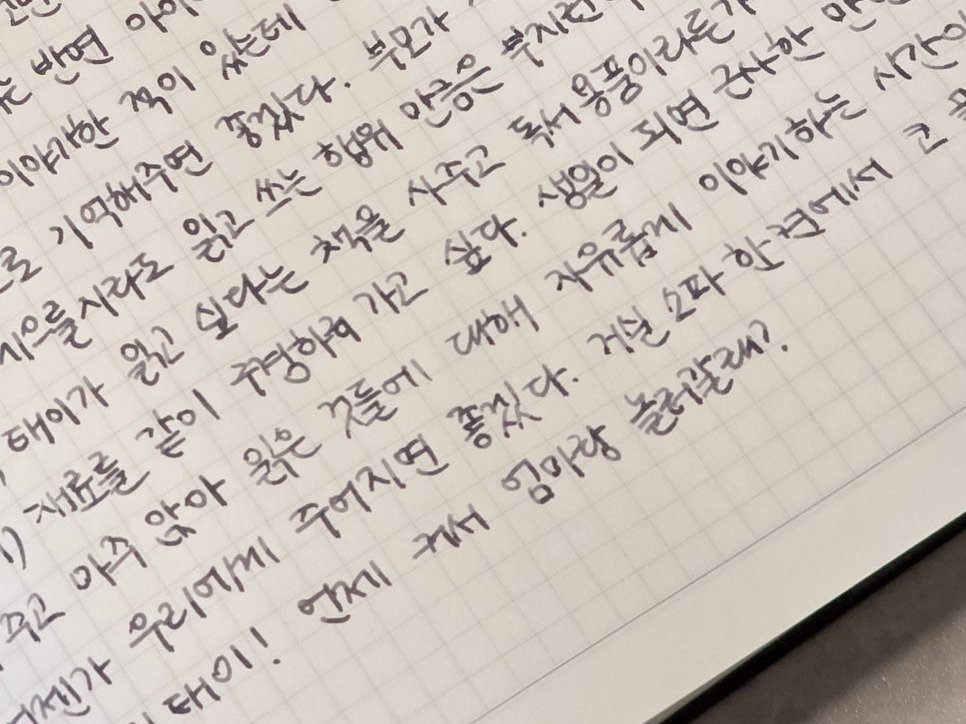 는 반면 아이
이야기한 적이 있는데
으로 기억해주면 좋겠다. 부모가
게으를지라도 읽고 쓰는 행위 만큼은 부지런
태이가 읽고 싶다는 책을 사주고 독서 용품이라든가
재료를 같이 구경하러 가고 싶다. 생일이 되면 근사한 만년
주고 마주 앉아 읽은 것들에 대해 자유롭게 이야기하는 시간이
언젠가 우리에게 주어지면 좋겠다. 거실 소파 한 켠에서 코
태이! 언제 커서 엄마랑 놀러갈래?